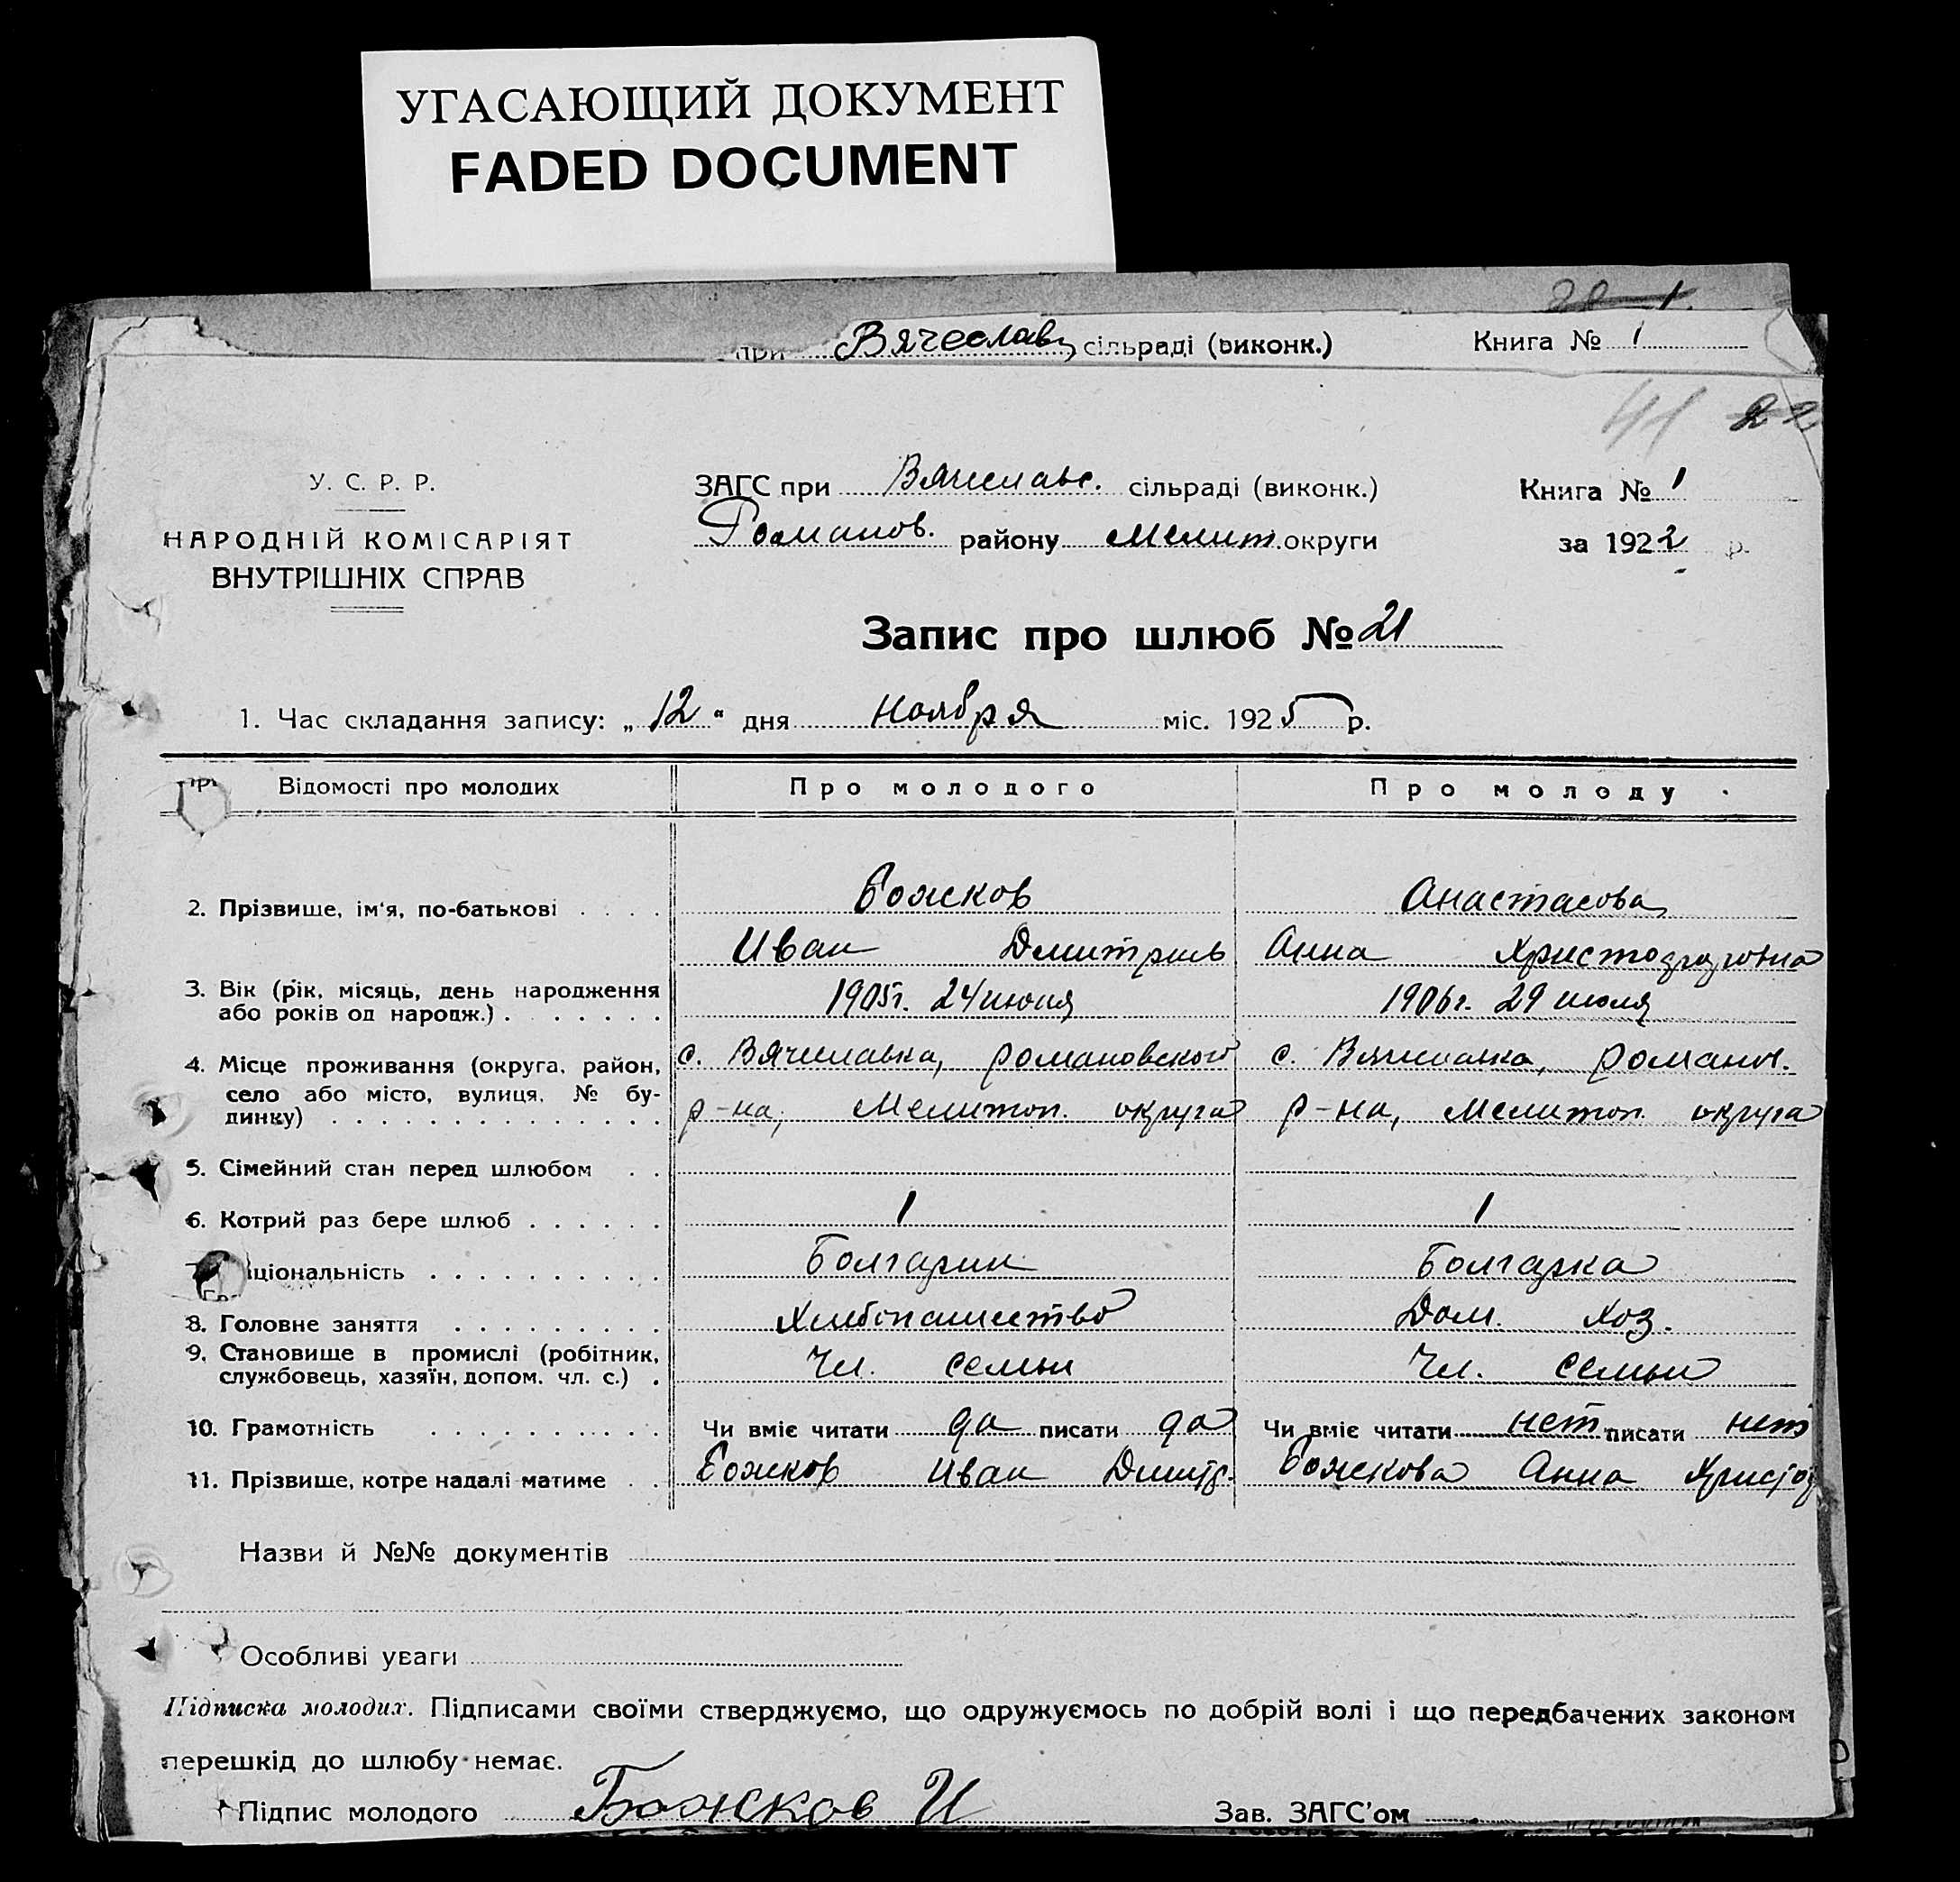 УГАСАЮЩИЙ ДОКУМЕНТ
FADED DOCUMENT
при Вячеславс сільраді (виконк.) Книга № 1
41 22
У. С. Р. Р. ЗАГС при Вячеславс. сільраді (виконк.) Книга № 1
НАРОДНІЙ КОМІСАРІЯТ Романов. району Мелит. округи за 1922 р.
ВНУТРІШНІХ СПРАВ
Запис про шлюб № 21
1. Час складання запису: „ 12 “ дня ноября міс. 1925 р.
Відомості про молодих Про молодого Про молоду
2. Прізвище, ім'я, по-батькові Божков Анастасова
Иван Дмитриев Анна Христодуловна
3. Вік (рік, місяць, день народження
або років од народж.) 1905г. 24 июня 1906г. 29 июля
4. Місце проживання (округа, район, с. Вячеславка, романовского с. Вячеславка, романов.
село або місто, вулиця, № бу-
динку) р-на, Мелитоп. округа р-на, Мелитоп. округа
5. Сімейний стан перед шлюбом
6. Котрий раз бере шлюб 1 1
ціональність Болгарин Болгарка
8. Головне заняття Хлебопашество Дом. хоз.
9. Становище в промислі (робітник,
службовець, хазяїн, допом. чл. с.) Чл. семьи Чл. семьи
10. Грамотність Чи вміє читати да писати да Чи вміє читати нет писати нет
11. Прізвище, котре надалі матиме Божков Иван Дмитр. Божкова Анна Христод
Назви й №№ документів
Особливі уваги
Підписка молодих. Підписами своїми стверджуємо, що одружуємось по добрій волі і що передбачених законом
перешкід до шлюбу немає.
Підпис молодого Божков И Зав. ЗАГС'ом